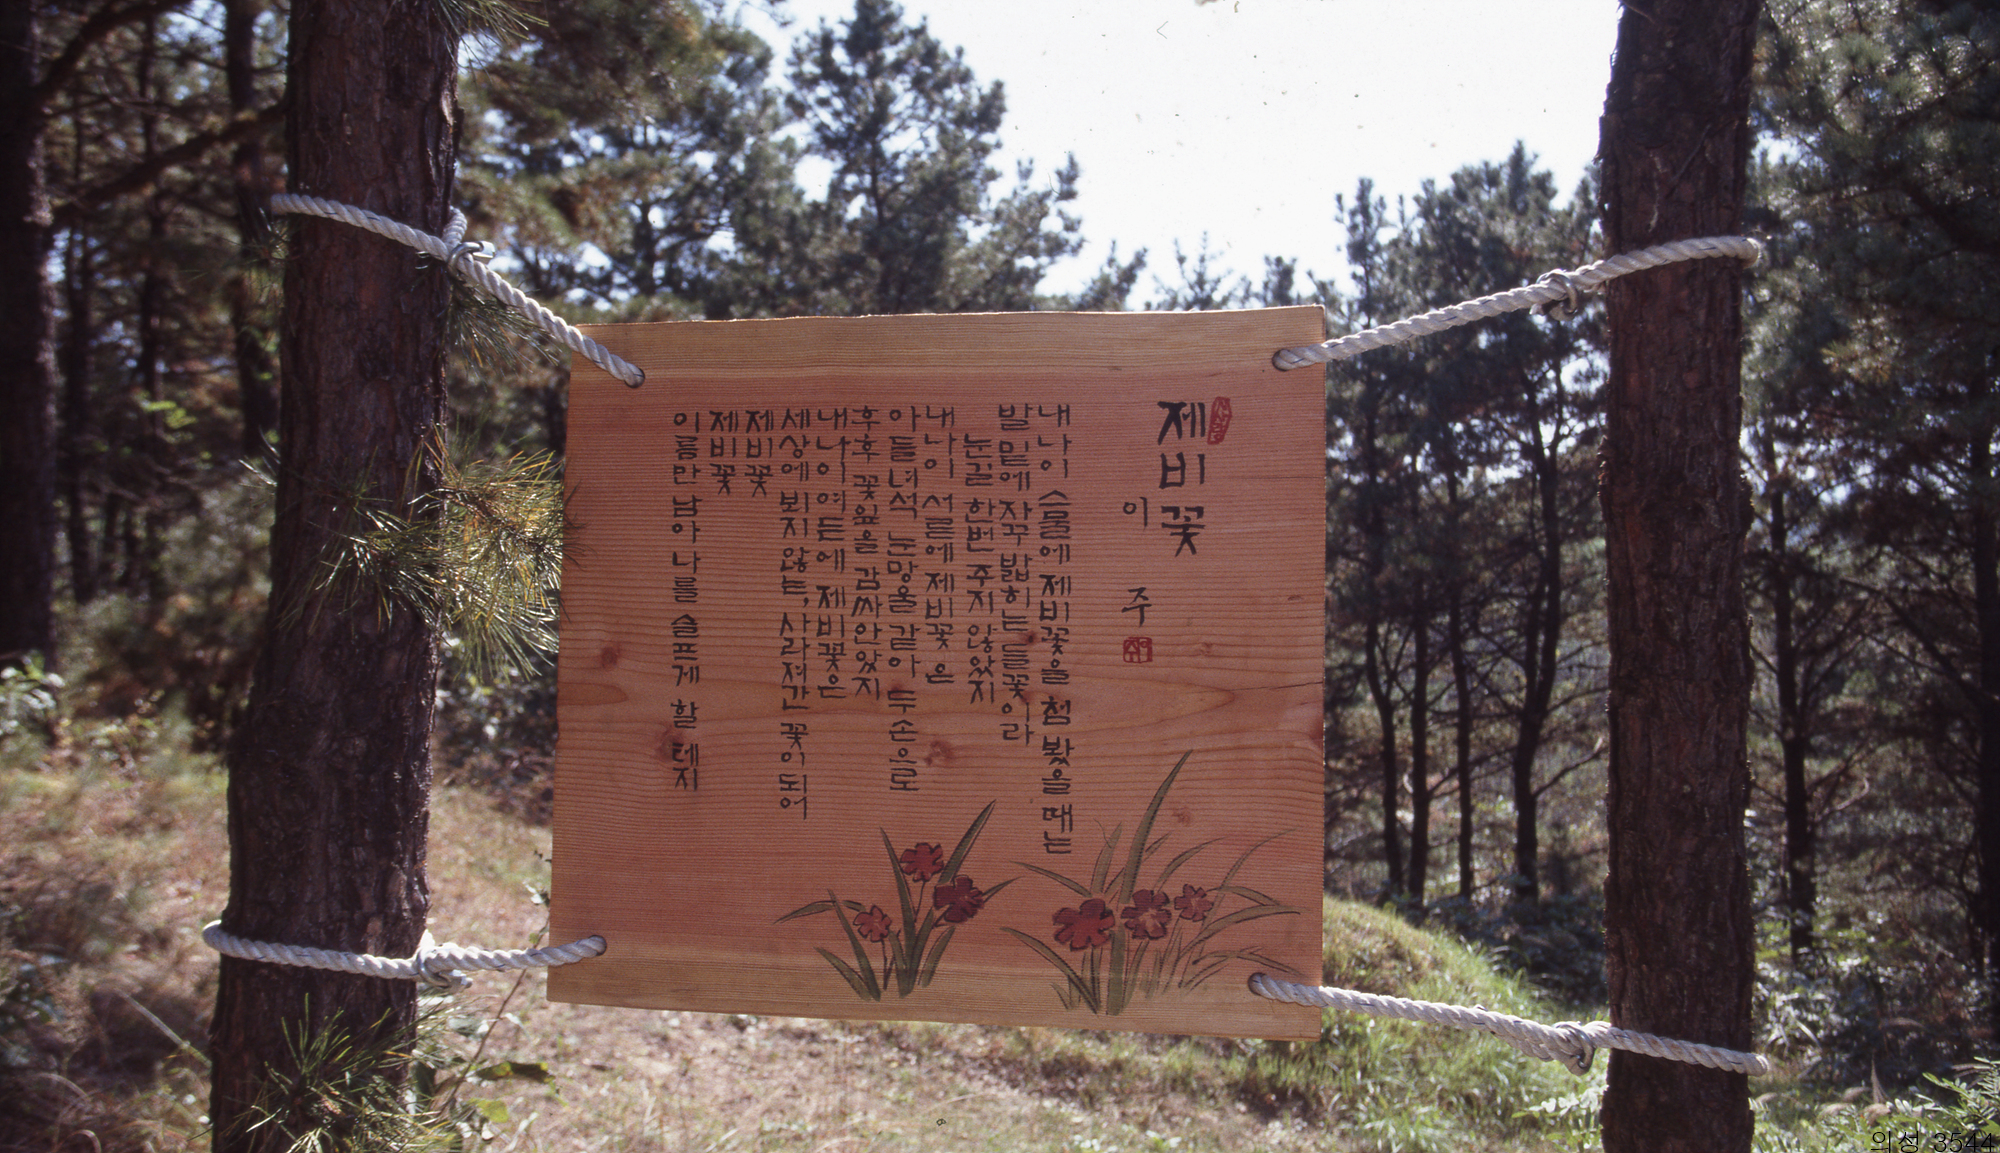 제비꽃
이 주
내 나이 스물에 제비꽃을 첨 봤을 때는
발 밑에 자꾸 밟히는 들꽃이라
눈길 한번 주지 않았지
내 나이 서른에 제비꽃은
아들녀석 눈망울 같아 두 손으로
후후 꽃잎을 감싸안았지
내 나이 여든에 제비꽃은
세상에 뵈지 않는, 사라져간 꽃이 되어
제비꽃
제비꽃
이름만 남아 나를 슬프게 할 테지
의성 3544